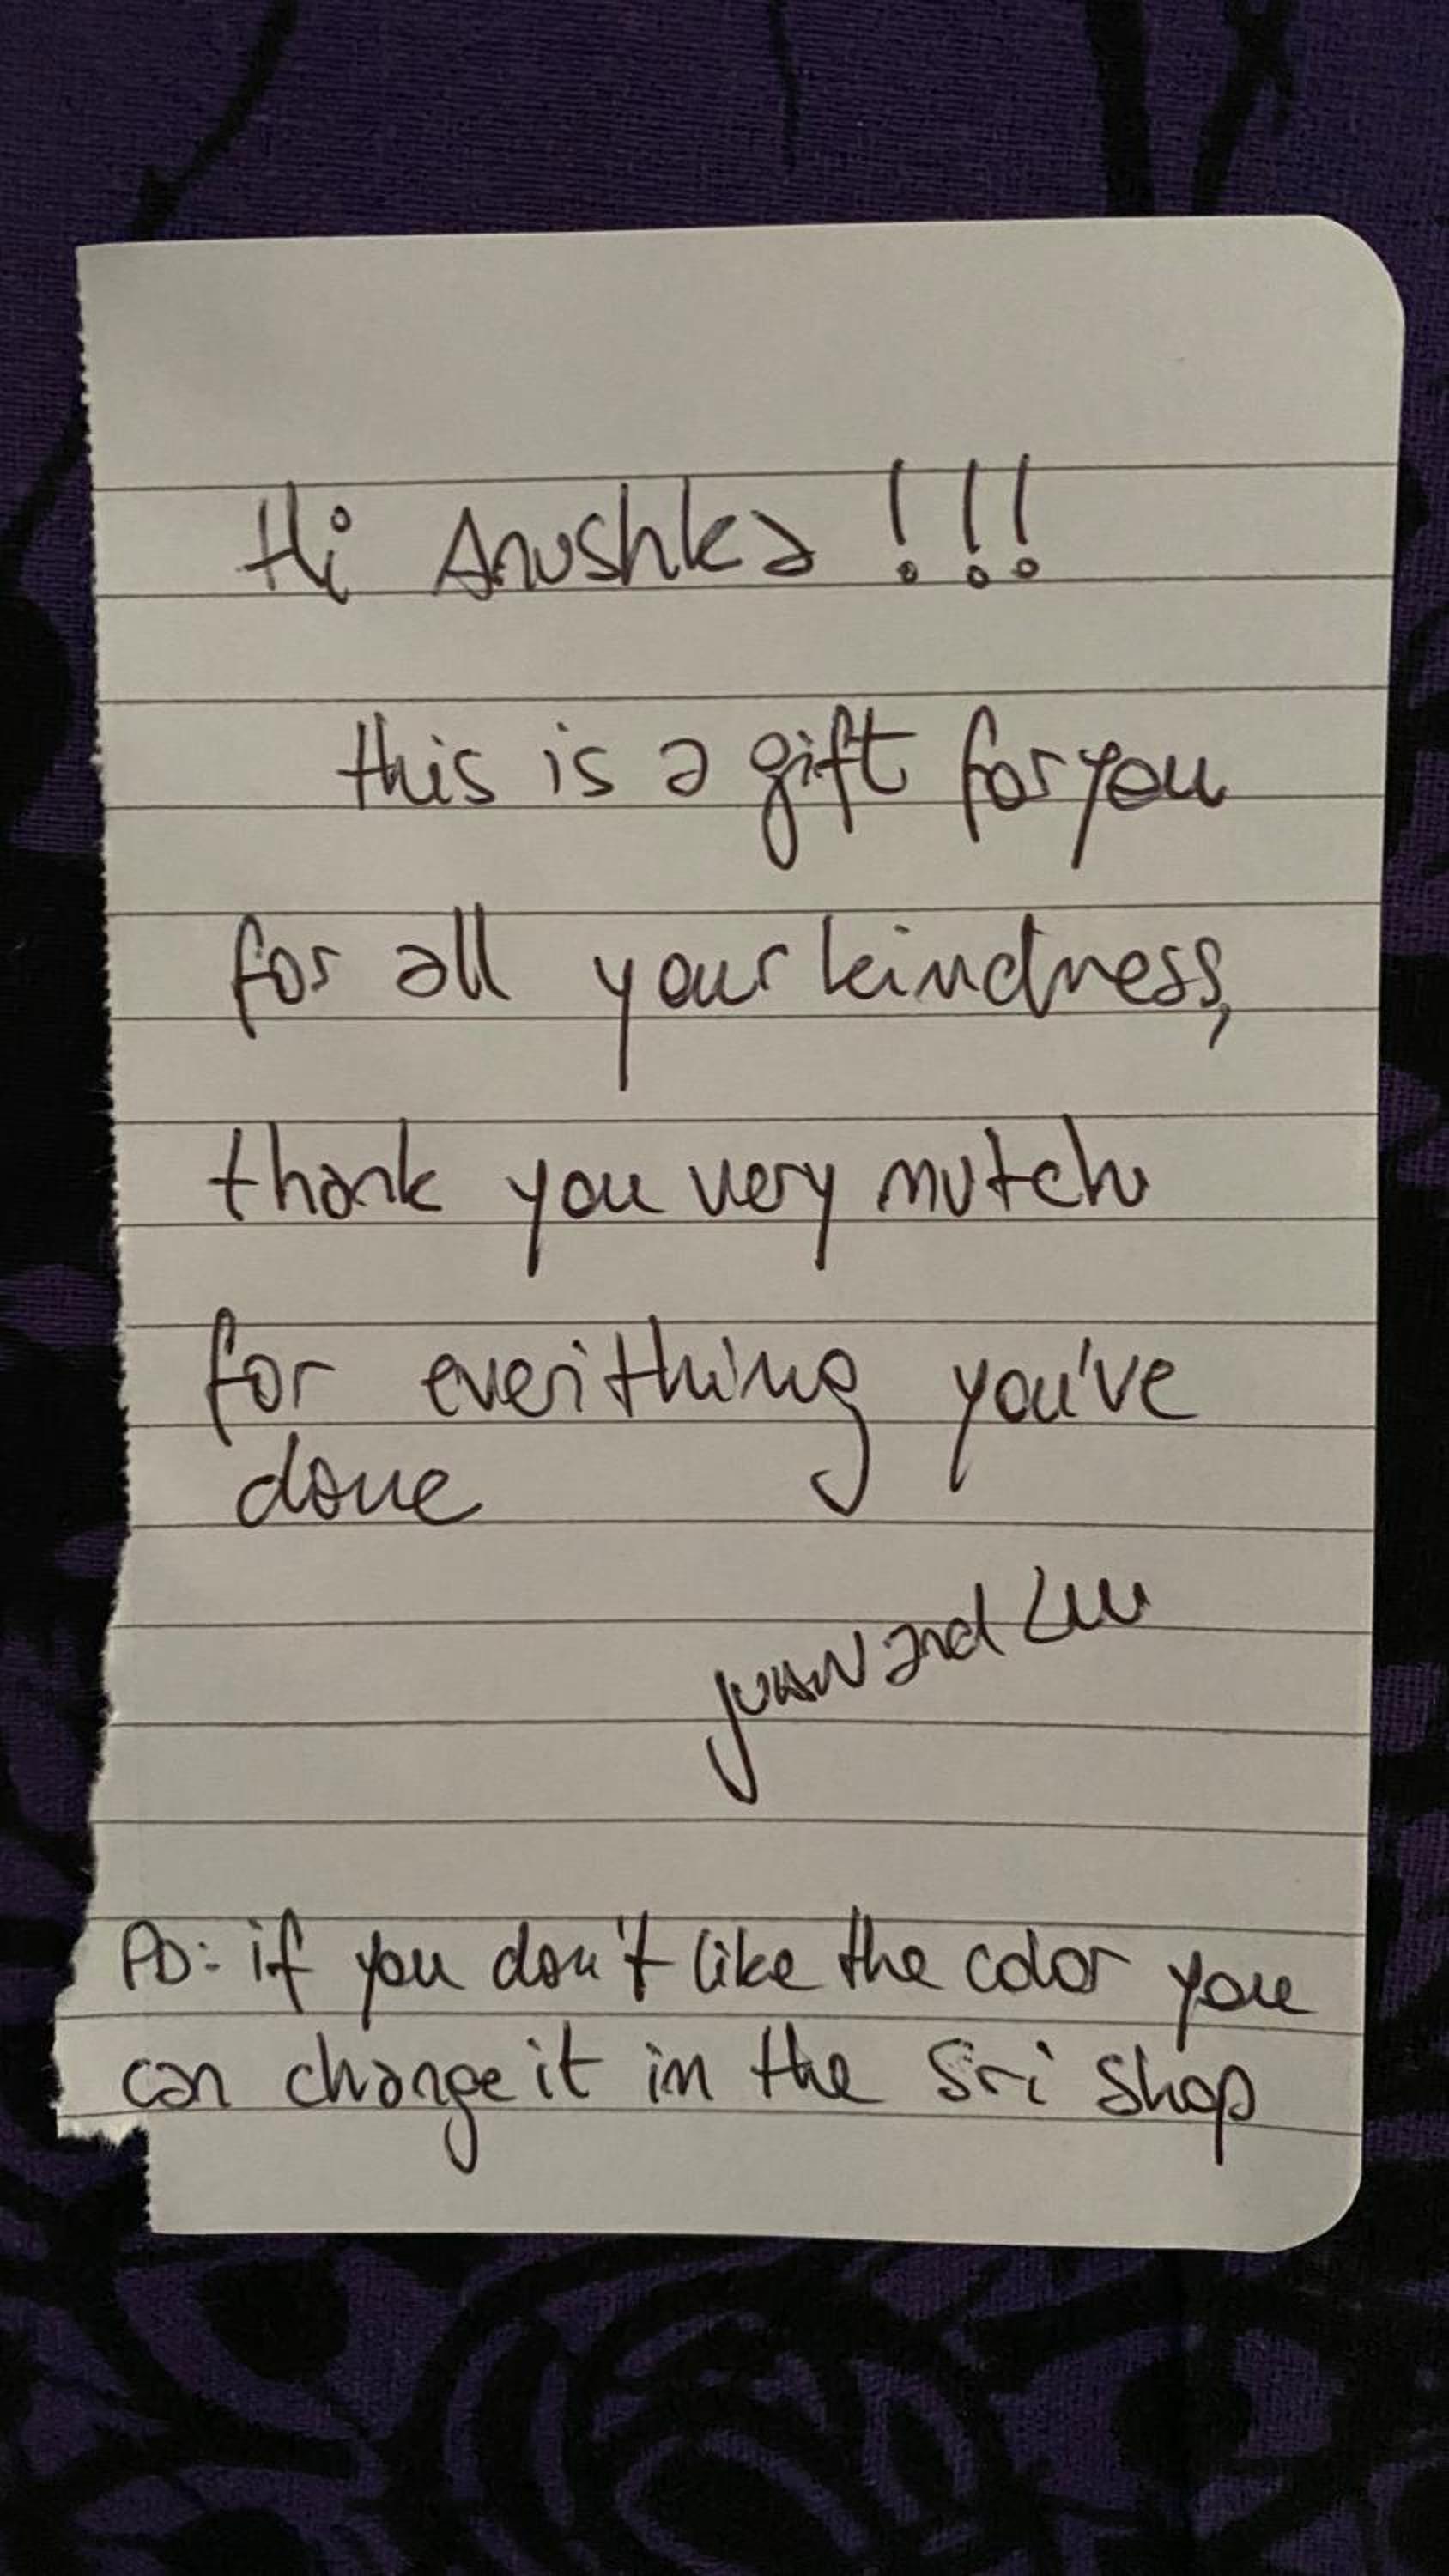 Hi Anushka !!!
this is a gift for you
for all your kindness,
thank you very mutch
for everithing you've
done
Juan and Lu
PD: if you don't like the color you
can change it in the Sri shop